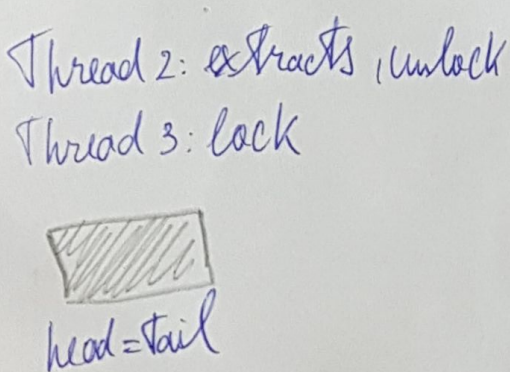 Thread 2: extracts, unlock
Thread 3: lock
head=tail